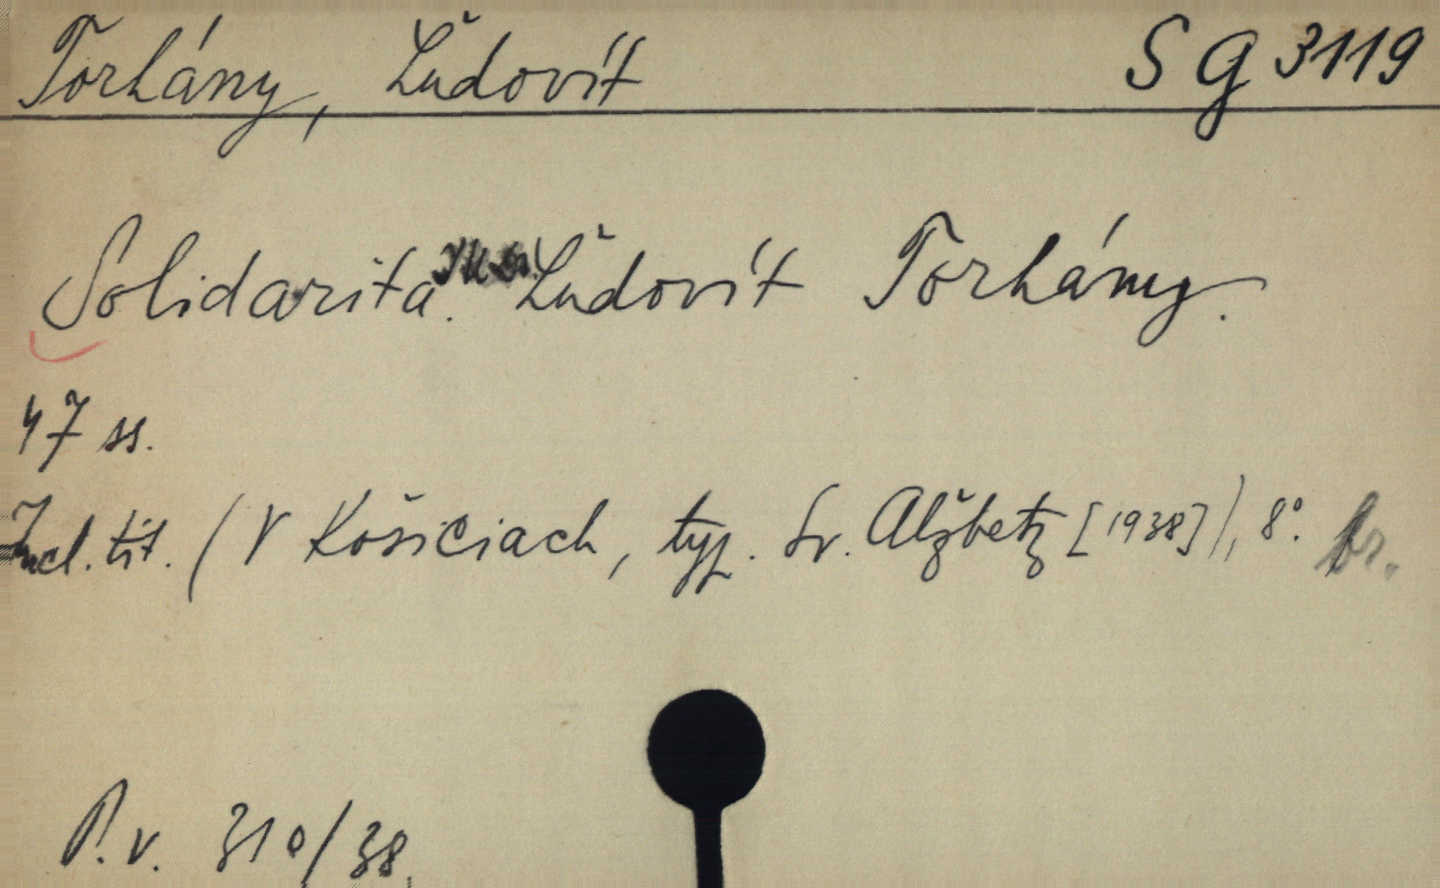 Torhány, Ľudovít SG 3119
Solidarita. Ľudovít Torhány.
47 ss.
Incl. tit. (V Košiciach, typ. Sv. Alžbety [1938]), 8°. br.
P.v. 310/38.